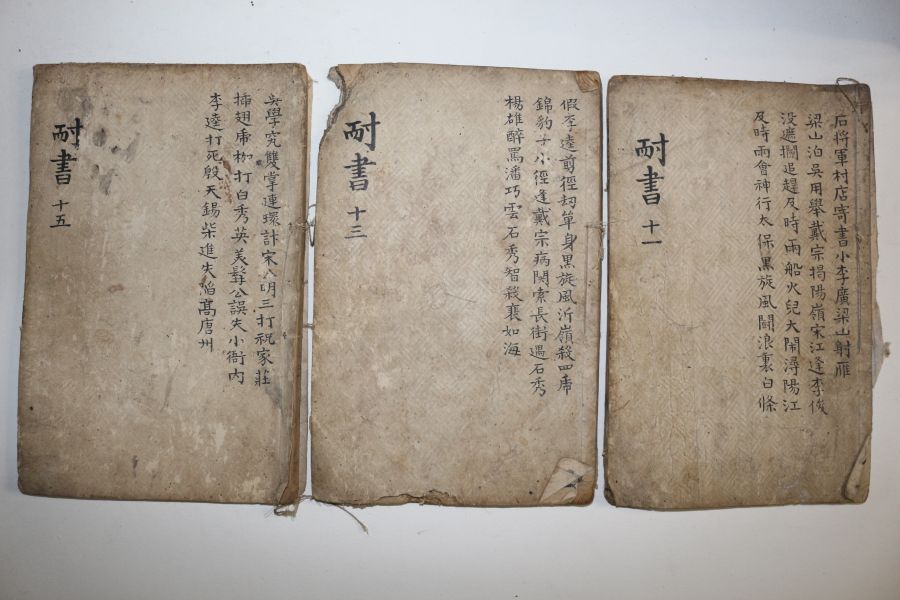 石将軍村店寄書小李廣梁山射雁
梁山泊吳用舉戴宗揭陽嶺宋江逢李俊
没遮攔追趕及時雨船火兒大閙潯陽江
及時雨會神行太保黒旋風鬪浪裏白條
耐書 十一
假李逵剪徑刼單身黒旋風沂嶺殺四虎
錦豹子小徑逢戴宗病関索長街遇石秀
楊雄醉罵潘巧雲石秀智殺裵如海
耐書 十三
吳學究雙掌連環計宋公明三打祝家莊
揷翅虎枷打白秀英美髯公誤失小衙内
李逵打死殷天錫柴進失陷髙唐州
耐書 十五